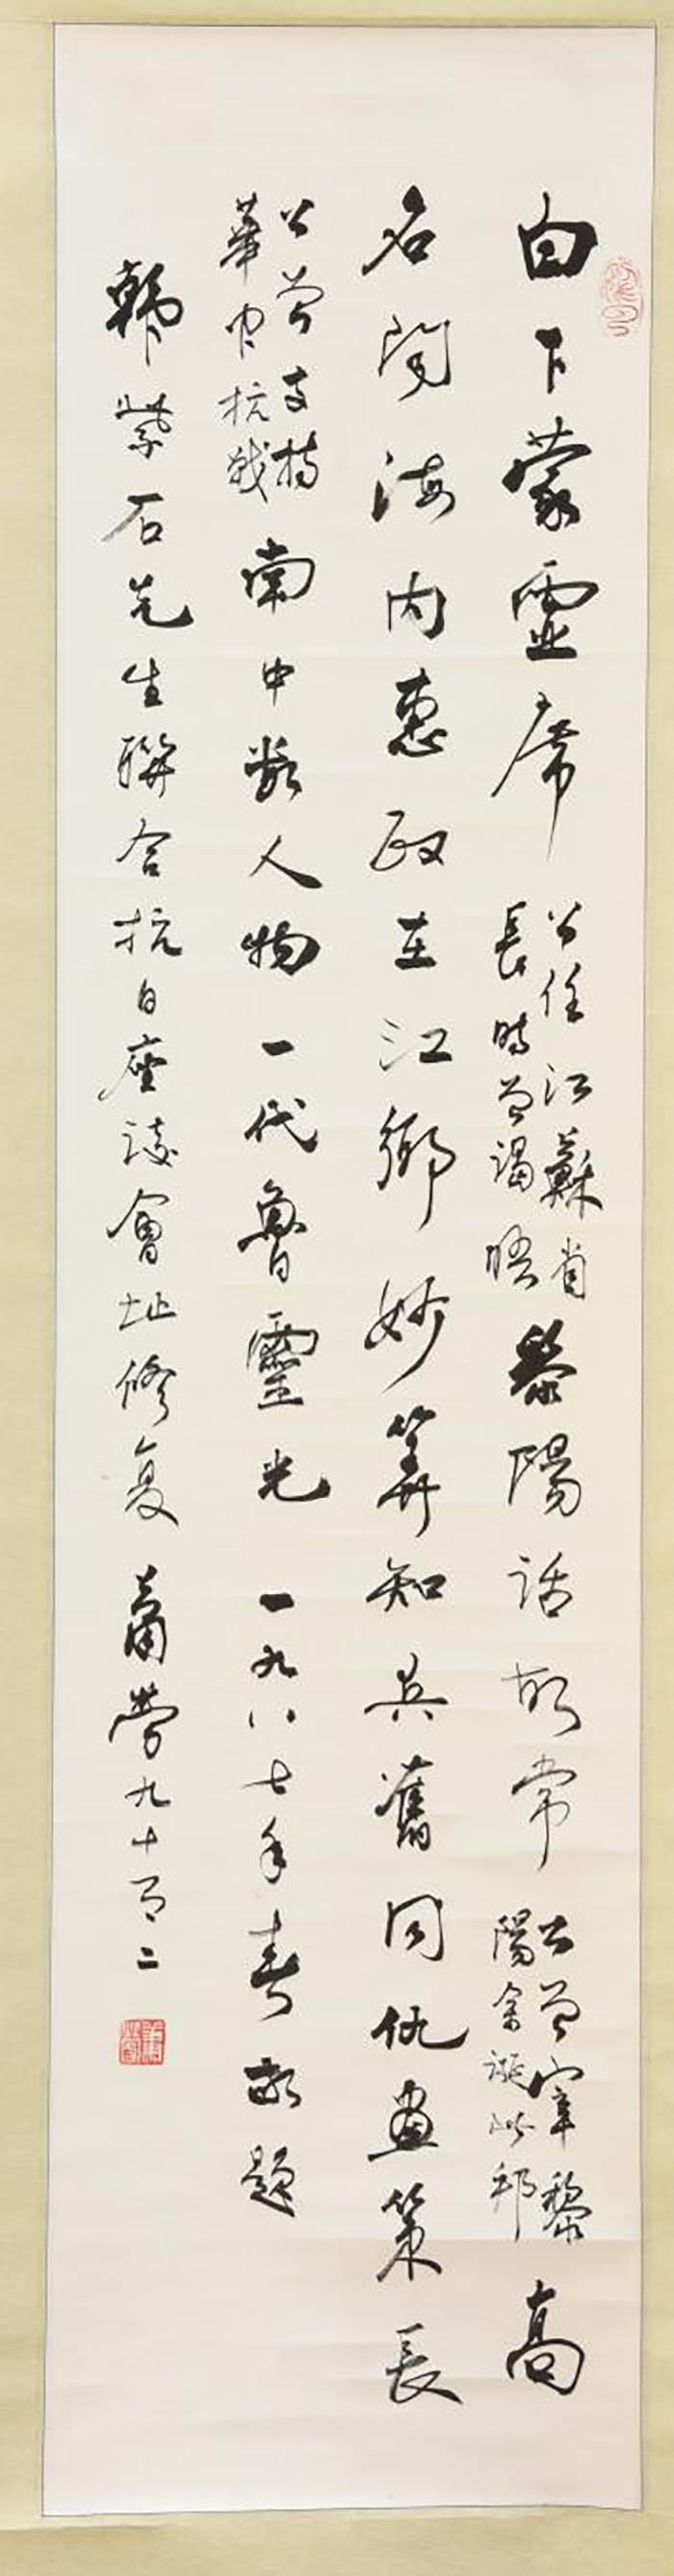 白下蒙虛席公任江蘇省長時曾謁晤黎陽話故常公曾宰黎陽余誕此邦高
名聞海内惠政在江鄉妙算知兵舊同仇畫策長
公曾支持華中抗戰南中數人物一代魯靈光 一九八七年春敬題
韓紫石先生聯合抗日座談會址修复 蕭勞九十有二
蕭勞